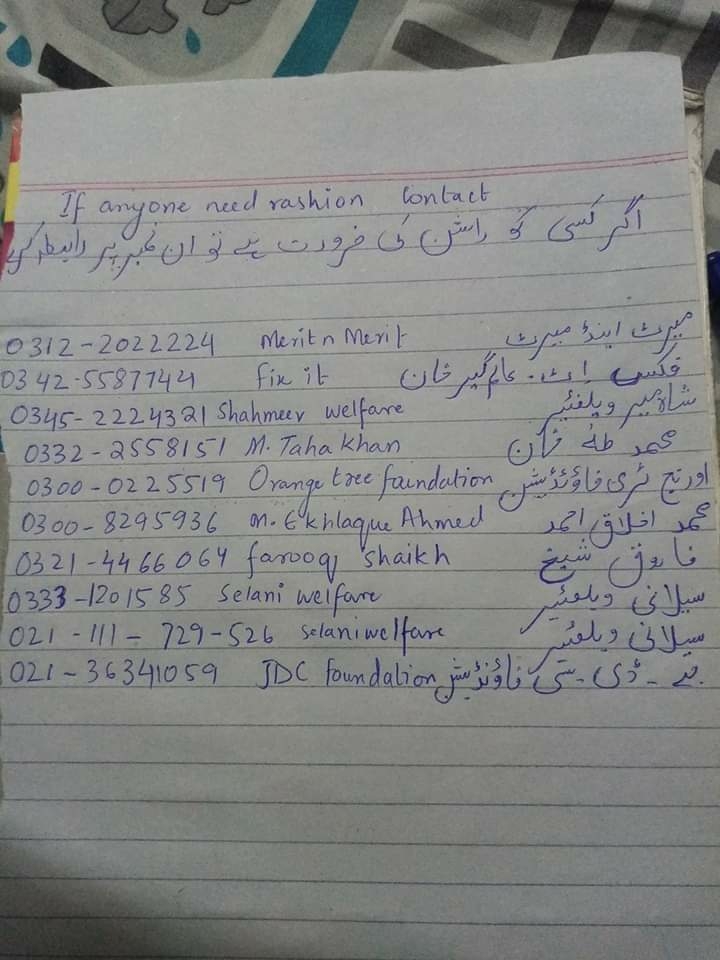 If anyone need rashion Contact
اگر کسی کو راشن کی ضرورت ہے تو ان نمبر پر رابطہ کریں
0312-2022224 Merit n Merit میرٹ اینڈ میرٹ
0342-5587744 Fix it فکس اٹ. عالمگیر خان
0345-2224321 Shahmeer welfare شاہ میر ویلفئیر
0332-2558151 M. Taha khan محمد طہٰ خان
0300-0225519 Orange tree foundation اورنج ٹری فاؤنڈیشن
0300-8295936 M. Ekhlaque Ahmed محمد اخلاق احمد
0321-4466064 farooq shaikh فاروق شیخ
0333-1201585 Selani welfare سیلانی ویلفئیر
021-111-729-526 Selani welfare سیلانی ویلفئیر
021-36341059 JDC foundation جے-ڈی-سی فاؤنڈیشن